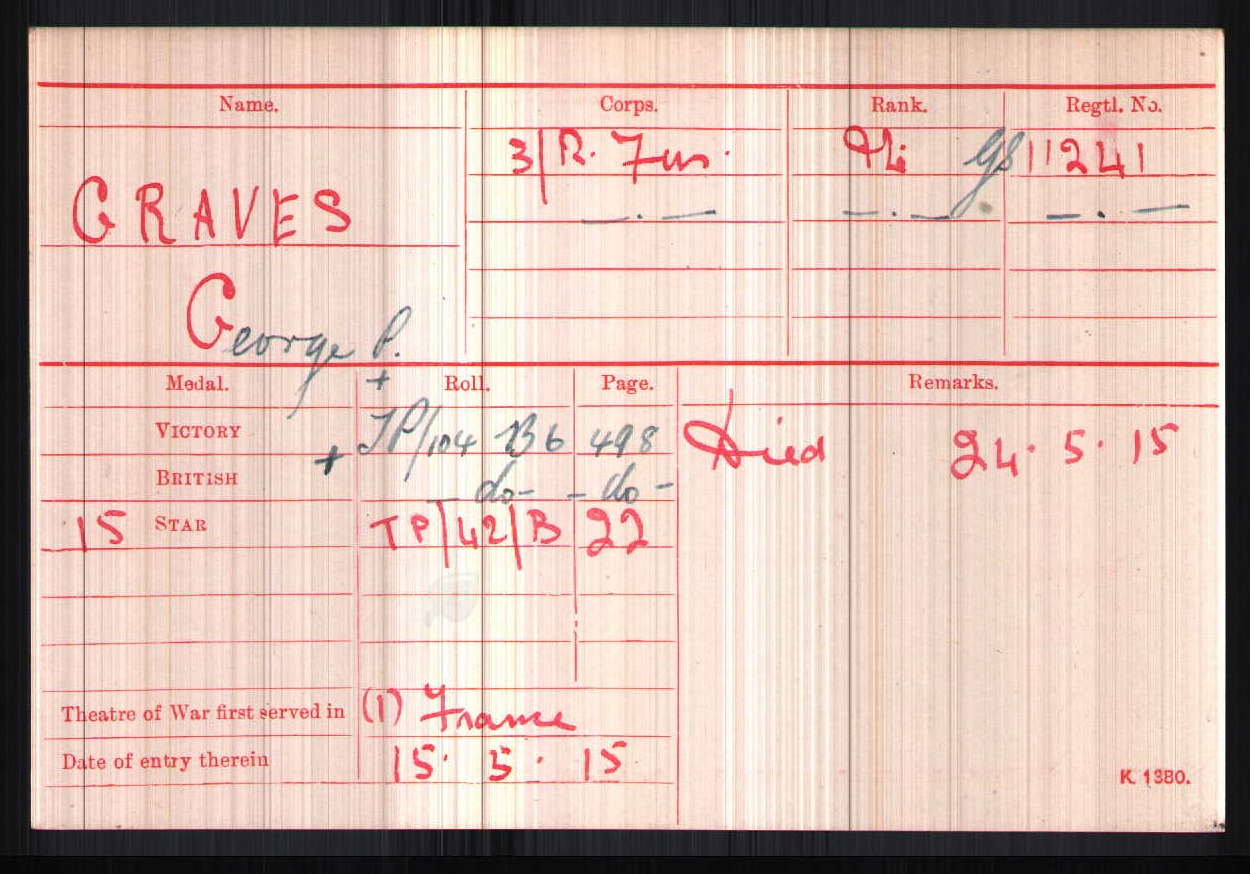 Name. Corps. Rank. Regtl. No.
3/R. Fus. Pte GS 11241
GRAVES — . — — . — — . —
George P.
Medal. + Roll. Page. Remarks.
VICTORY TP/104 B6 498 Died 24. 5. 15
+
BRITISH — do — — do —
15 STAR TP/42/B 22
Theatre of War first served in (1) France
Date of entry therein 15. 5. 15
K. 1380.